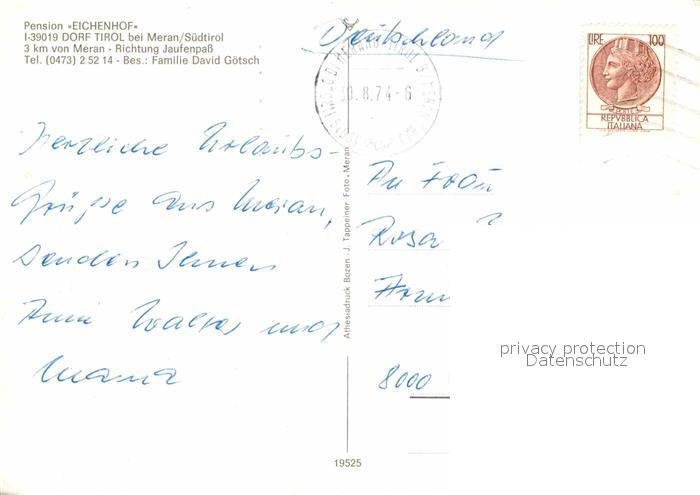 Pension »EICHENHOF«
I-39019 DORF TIROL bei Meran/Südtirol
3 km von Meran - Richtung Jaufenpaß
Tel. (0473) 2 52 14 - Bes.: Familie David Götsch
Deutschland
30.8.74-6
LIRE 100
POSTE
REPVBBLICA
ITALIANA
Herzliche Urlaubs-
grüsse aus Meran,
senden Ihnen
Anni Walter und
Maria
Athesiadruck Bozen - J. Tappeiner Foto, Meran
An Frau
Rosa
8000
privacy protection
Datenschutz
19525